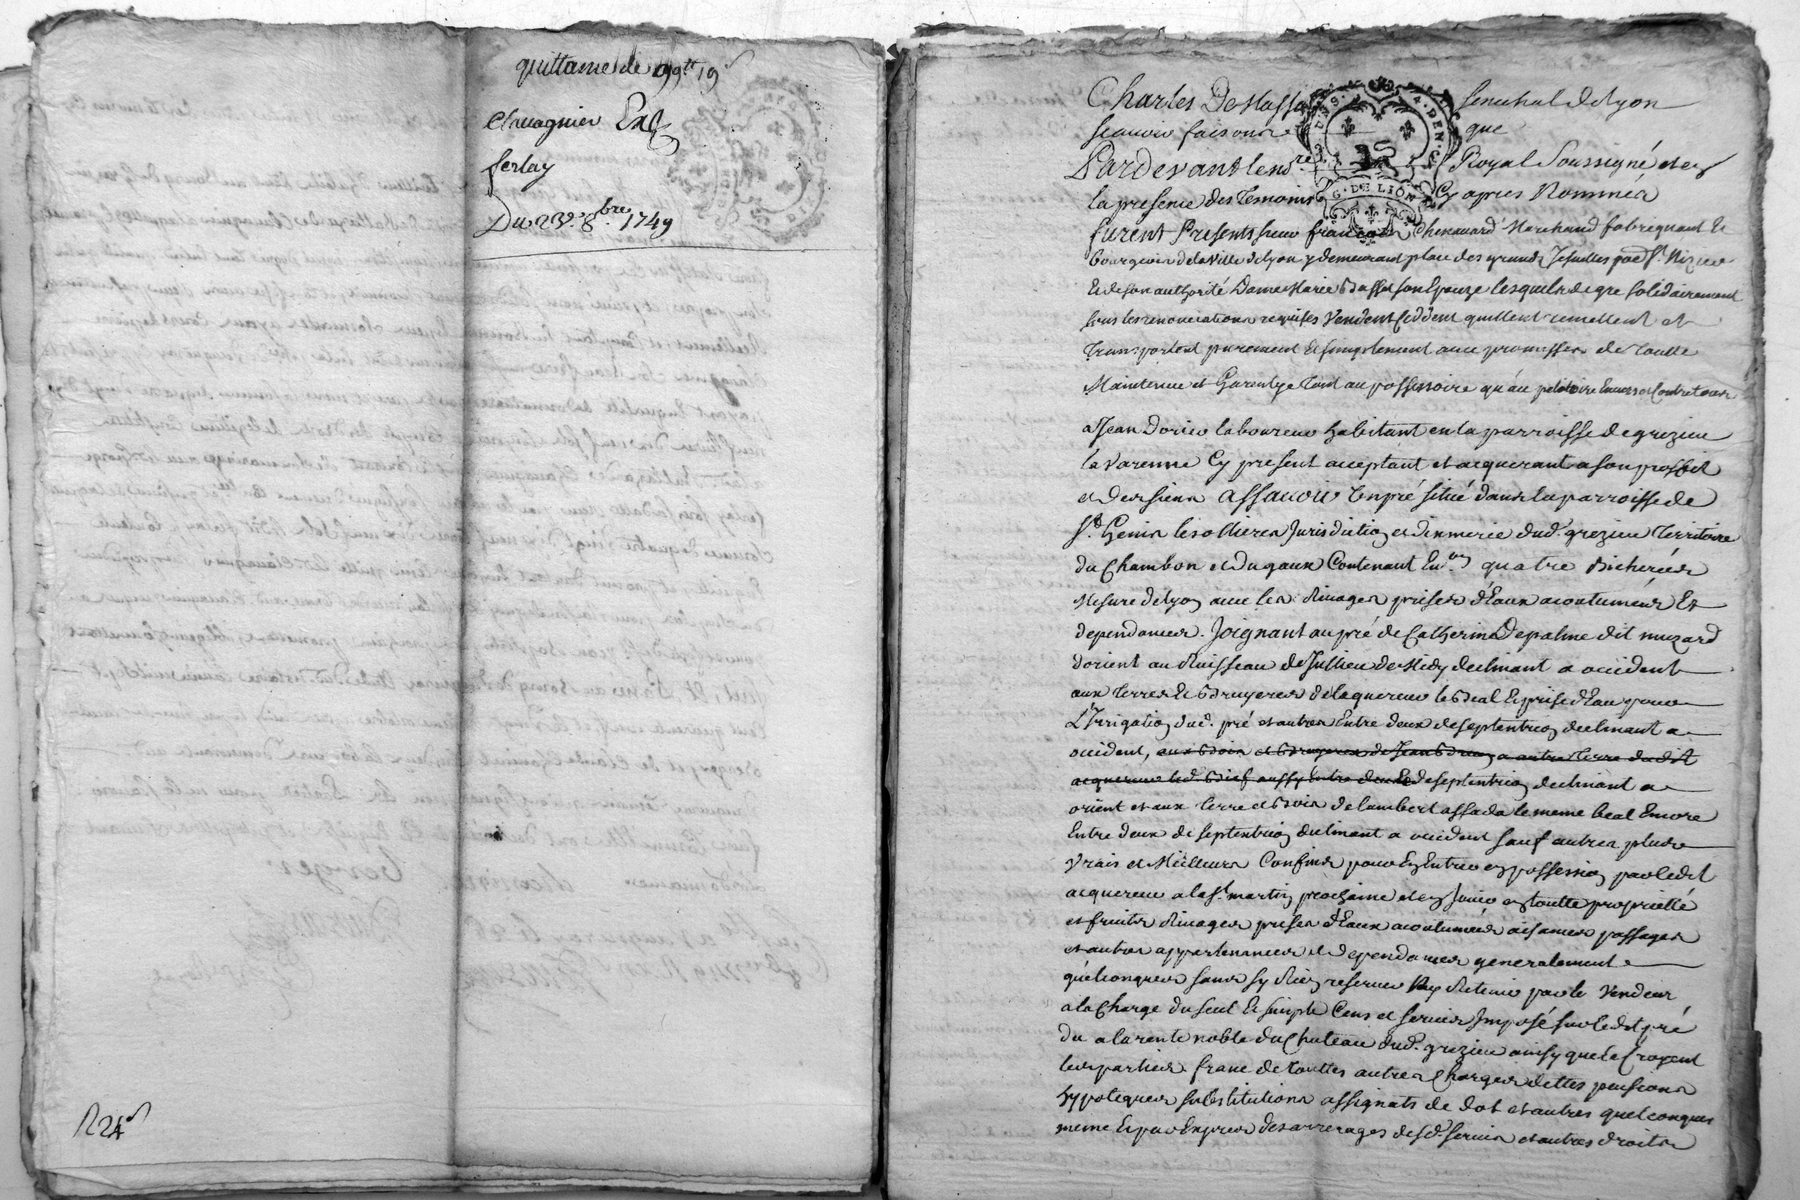 quittance de 99tt 19s
Chavagnier Ex
ferlay
Du 23e 8bre 1749
R 24s
Charles De Massa senechal de Lyon
scavoir faisons que
Pardevant le nore Royal Soussigné et en
la presence des Temoins Cy apres Nommés
furent Presents sieur françois Chenavard Marchand fabriquant Et
bourgeois de la Ville de Lyon y demeurant place des grands Jesuittes parse St Nizier
Et de son authorité Dame Marie Basset son Epouze lesquels de gre solidairement
sous les renonciations requises Vendent Ceddent quittent remettent et
Transportent purement Et simplement avec promesses de toutte
Maintenue et Garentye tant au possessoire qu'au petitoire Envers et Contre tous
a Jean Dorieu laboureur habitant en la parroisse de grezieu
la Varenne Cy present acceptant et acquerant a son proffit
et des siens assavoir un pré situé dans la parroisse de
St Genis les ollieres Jurisdiction et dixmerie dud. grezieu Territoire
du Chambon et du gaux Contenant Env.on quatre Bicherées
Mesure de Lyon avec les Rivages prises d'Eaux acoutumées Et
dependances. Joignant au pré de Catherine Depalme dit muzard
d'orient au Ruisseau de Jullieu de Midy declinant a occident
aux terres Et Bruyeres de l'aquereur le Beal Et prise d'Eau pour
L'Irrigation dud. pré et autres Entre deux de septentrion declinant a
occident, aux Bois et Bruyeres de Jean Brun, a autre terre dudit
acquereur led. Bief aussy Entre deux de septentrion declinant a
orient et aux terre et Bois de Lambert assada le meme beal Encore
Entre deux de septentrion declinant a occident sauf autres plus
Vrais et Meilleurs Confins pour En Entrer en possession par ledit
acquereur a la St martin prochaine et en Jouir en toutte proprietté
et fruits Rivages prises d'Eaux acoutumées aisances passages
et autres appartenances et dependances generalement
quelconques sans sy Rien reserver Ny Retenir par le Vendeur
a la Charge du seul Et simple Cens et servis Imposé sur ledit pré
du a la rente noble du Chateau dud. grezieu ainsy que le Croyent
les parties franc de touttes autres Charges dettes pensions
hypoteques substitutions assignats de dot et autres quelconques
meme Et par Exprès des arrerages desd. servis et autres droits